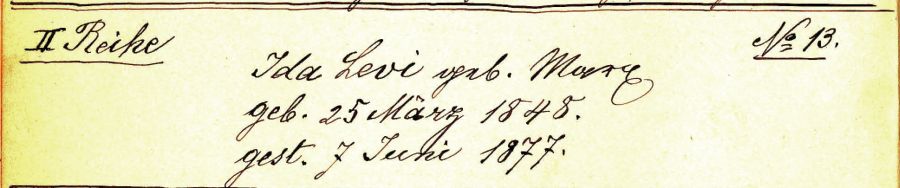 II Reihe
No 13.
Ida Levi geb. Marx
geb. 25 März 1848.
gest. 7 Juni 1877.